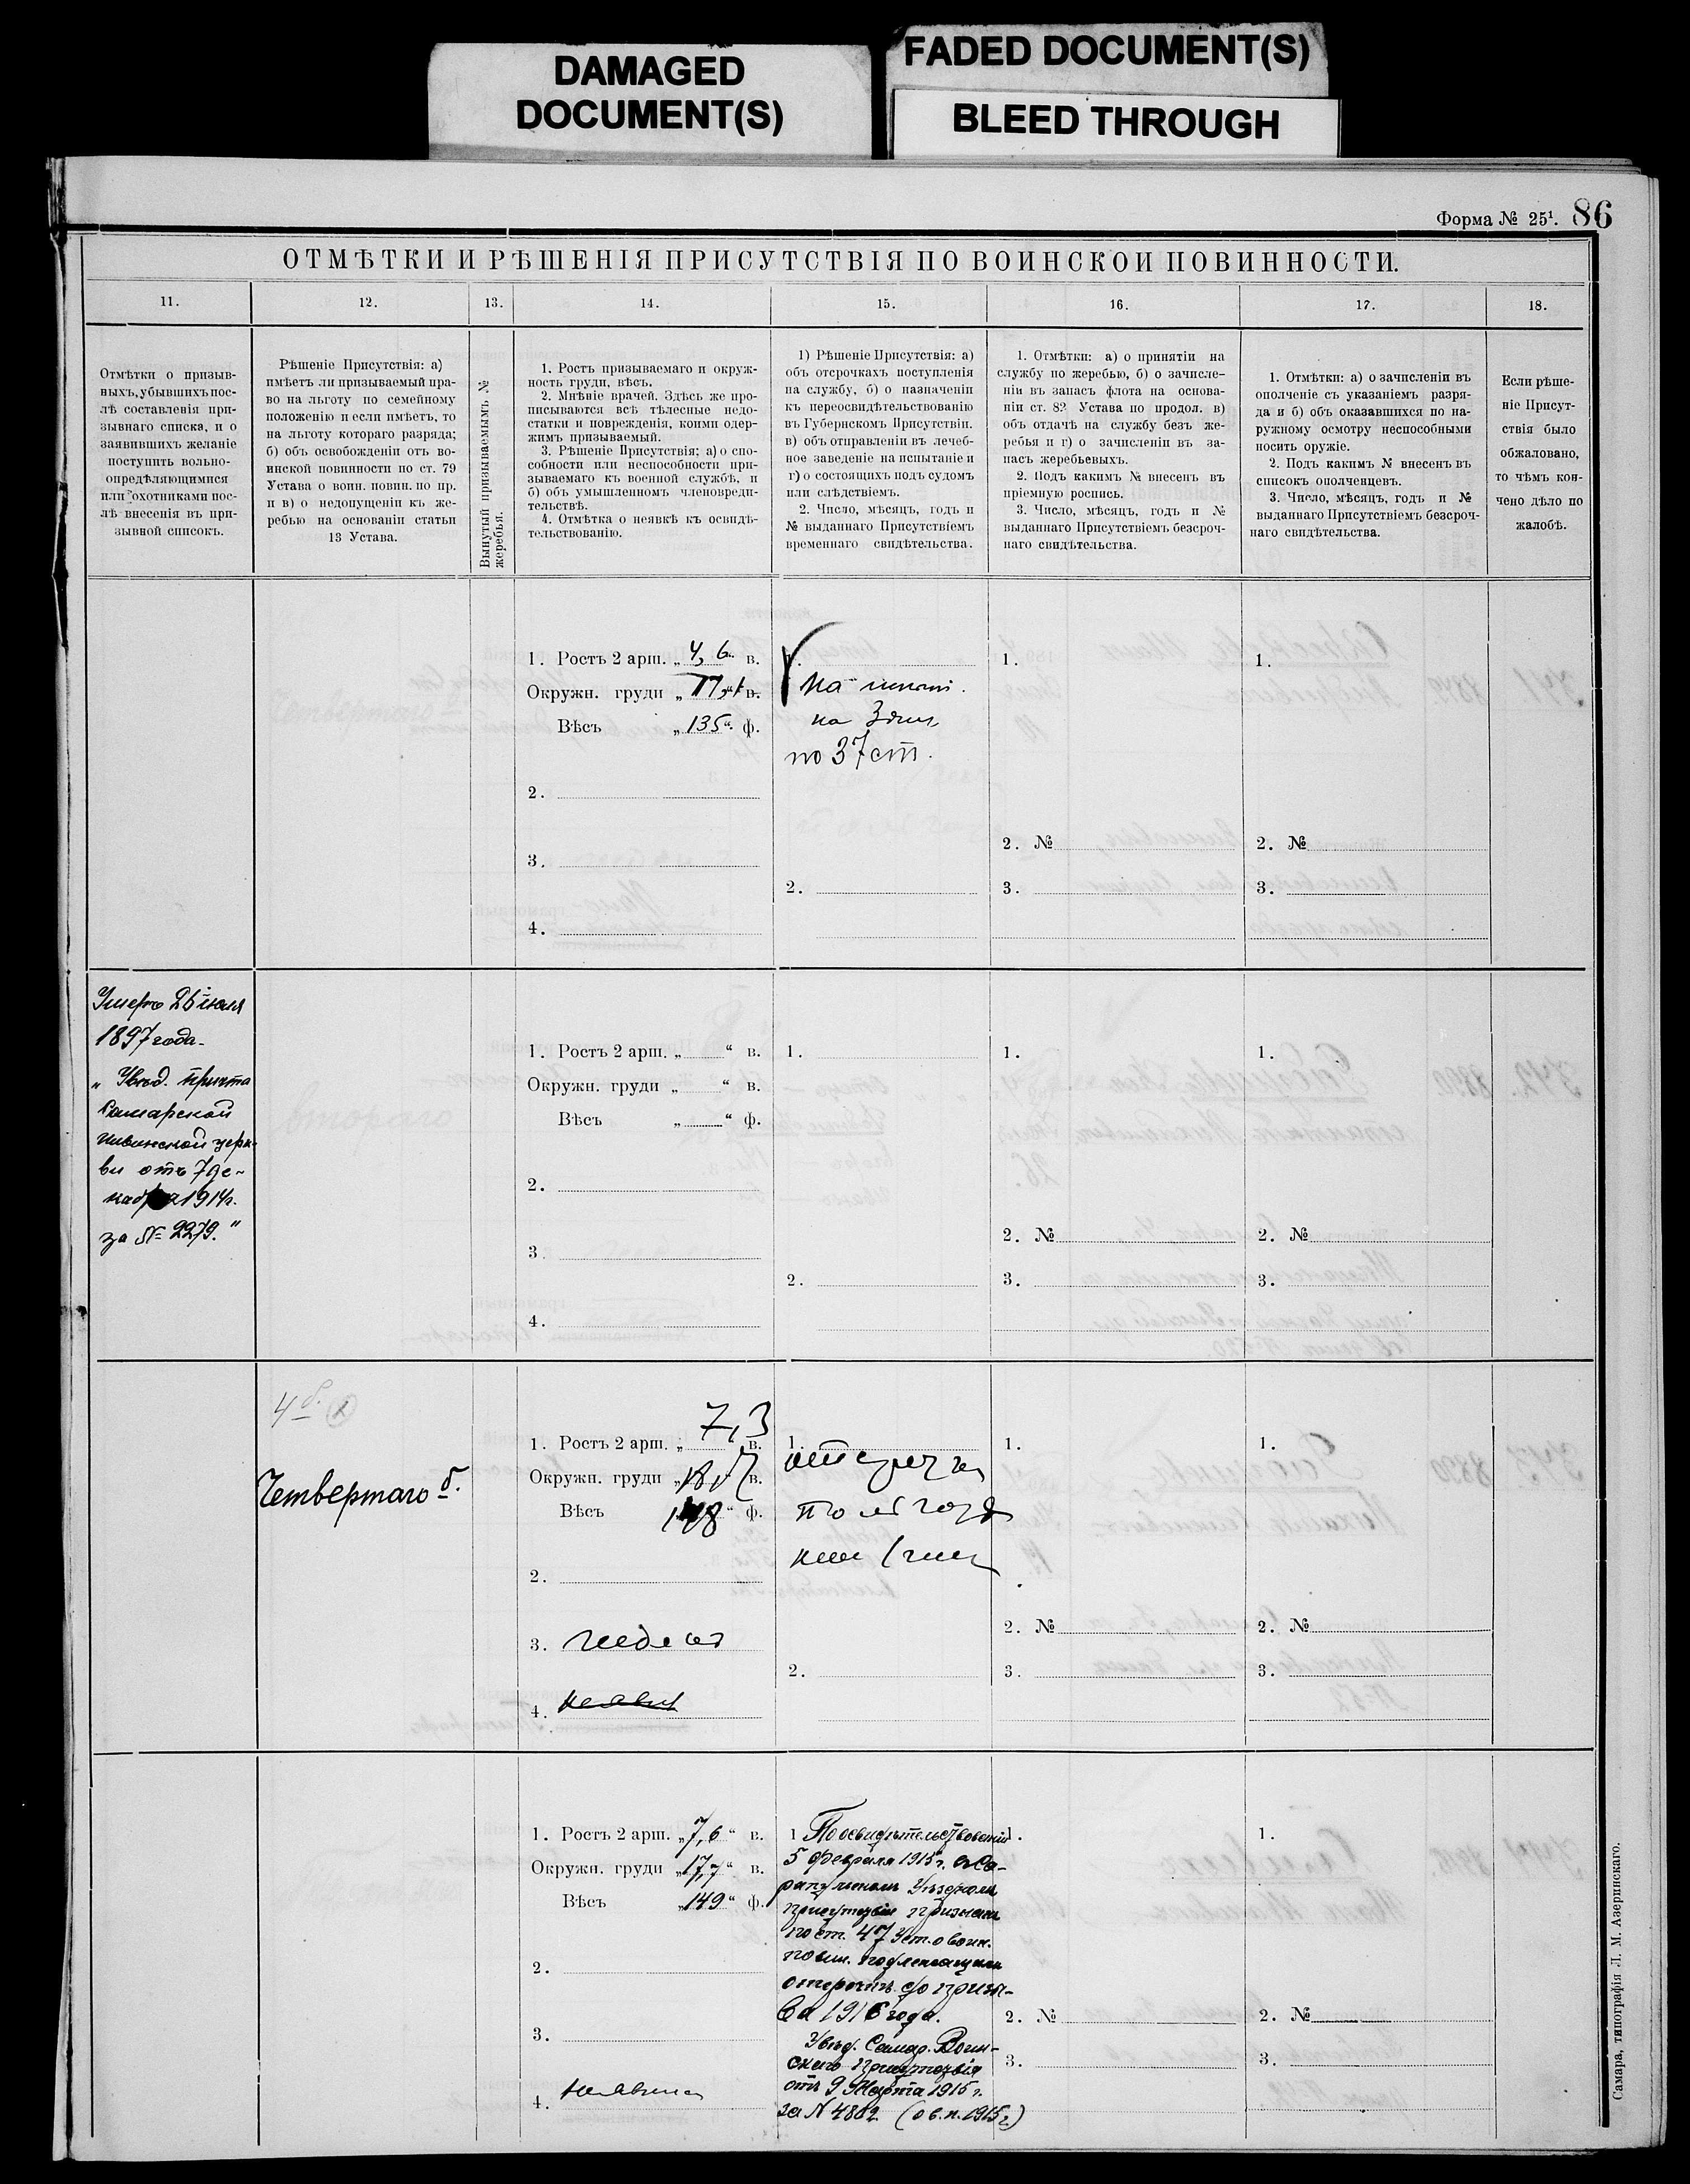 DAMAGED
DOCUMENT(S)
FADED DOCUMENT(S)
BLEED THROUGH
Форма № 25¹. 86
ОТМѢТКИ И РѢШЕНІЯ ПРИСУТСТВІЯ ПО ВОИНСКОЙ ПОВИННОСТИ.
11. 12. 13. 14. 15. 16. 17. 18.
Отмѣтки о призыв-
ныхъ, убывшихъ пос-
лѣ составленія при-
зывнаго списка, и о
заявившихъ желаніе
поступить вольно-
опредѣляющимися
или охотниками пос-
лѣ внесенія въ при-
зывной списокъ.
Рѣшеніе Присутствія: а)
имѣетъ ли призываемый пра-
во на льготу по семейному
положенію и если имѣетъ, то
на льготу котораго разряда;
б) объ освобожденіи отъ во-
инской повинности по ст. 79
Устава о воин. повин. по пр.
и в) о недопущеніи къ же-
ребью на основаніи статьи
13 Устава.
Вынутый призываемымъ №
жеребья.
1. Ростъ призываемаго и окруж-
ность груди, вѣсъ.
2. Мнѣніе врачей. Здѣсь же про-
писываются всѣ тѣлесные недо-
статки и поврежденія, коими одер-
жимъ призываемый.
3. Рѣшеніе Присутствія; а) о спо-
собности или неспособности при-
зываемаго къ военной службѣ, и
б) объ умышленномъ членовреди-
тельствѣ.
4. Отмѣтка о неявкѣ къ освидѣ-
тельствованію.
1) Рѣшеніе Присутствія: а)
объ отсрочкахъ поступленія
на службу, б) о назначеніи
къ переосвидѣтельствованію
въ Губернскомъ Присутствіи.
в) объ отправленіи въ лечеб-
ное заведеніе на испытаніе и
г) о состоящихъ подъ судомъ
или слѣдствіемъ.
2. Число, мѣсяцъ, годъ и
№ выданнаго Присутствіемъ
временнаго свидѣтельства.
1. Отмѣтки: а) о принятіи на
службу по жеребью, б) о зачисле-
ніи въ запасъ флота на основа-
ніи ст. 82 Устава по продол. в)
объ отдачѣ на службу безъ же-
ребья и г) о зачисленіи въ за-
пасъ жеребьевыхъ.
2. Подъ какимъ № внесенъ въ
пріемную роспись.
3. Число, мѣсяцъ, годъ и №
выданнаго Присутствіемъ безсроч-
наго свидѣтельства.
1. Отмѣтки: а) о зачисленіи въ
ополченіе съ указаніемъ разря-
да и б) объ оказавшихся по на-
ружному осмотру неспособными
носить оружіе.
2. Подъ какимъ № внесенъ въ
списокъ ополченцевъ.
3. Число, мѣсяцъ, годъ и №
выданнаго Присутствіемъ безсроч-
наго свидѣтельства.
Если рѣше-
ніе Присут-
ствія было
обжаловано,
то чѣмъ кон-
чено дѣло по
жалобѣ.
1. Ростъ 2 арш. „ 4, 6 “ в.
Окружн. груди „ 17, “ в.
Вѣсъ „ 135 “ ф.
2.
3.
4.
1.
на
на 3
по 37 ст.
2.
1.
2. №
3.
1.
2. №
3.
Умеръ 26 іюля
1897 года.
„ Увѣд. причта
Самарской
церк-
ви отъ 7 де-
кабря 1914 г.
за № 2279. “
1. Ростъ 2 арш. „ “ в.
Окружн. груди „ “ в.
Вѣсъ „ “ ф.
2.
3.
4.
1.
2.
1.
2. №
3.
1.
2. №
3.
4 б.
Четвертаго б.
1. Ростъ 2 арш. „ 7, 3 “ в.
Окружн. груди „ “ в.
Вѣсъ „ “ ф.
2.
3.
4. неявил
1.
отсрочка
2.
1.
2. №
3.
1.
2. №
3.
1. Ростъ 2 арш. „ 7, 6 “ в.
Окружн. груди „ 17, 7 “ в.
Вѣсъ „ 149 “ ф.
2.
3.
4. неявился
1 По освидѣтельствованіи
5 февраля 1915 г. въ Са-
рапульскомъ Уѣздномъ
присутствіи признанъ
по ст. 47 Уст. о воин.
повин. подлежащимъ
отсрочкѣ до призы-
ва 1916 года.
Увѣд. Самар. Воин-
скаго присутствія
отъ 9 Марта 1915 г.
за № 4882 (о в. п. 1915 г.)
2. №
3.
1.
2. №
3.
Самара, типографія Л. М. Азеринскаго.